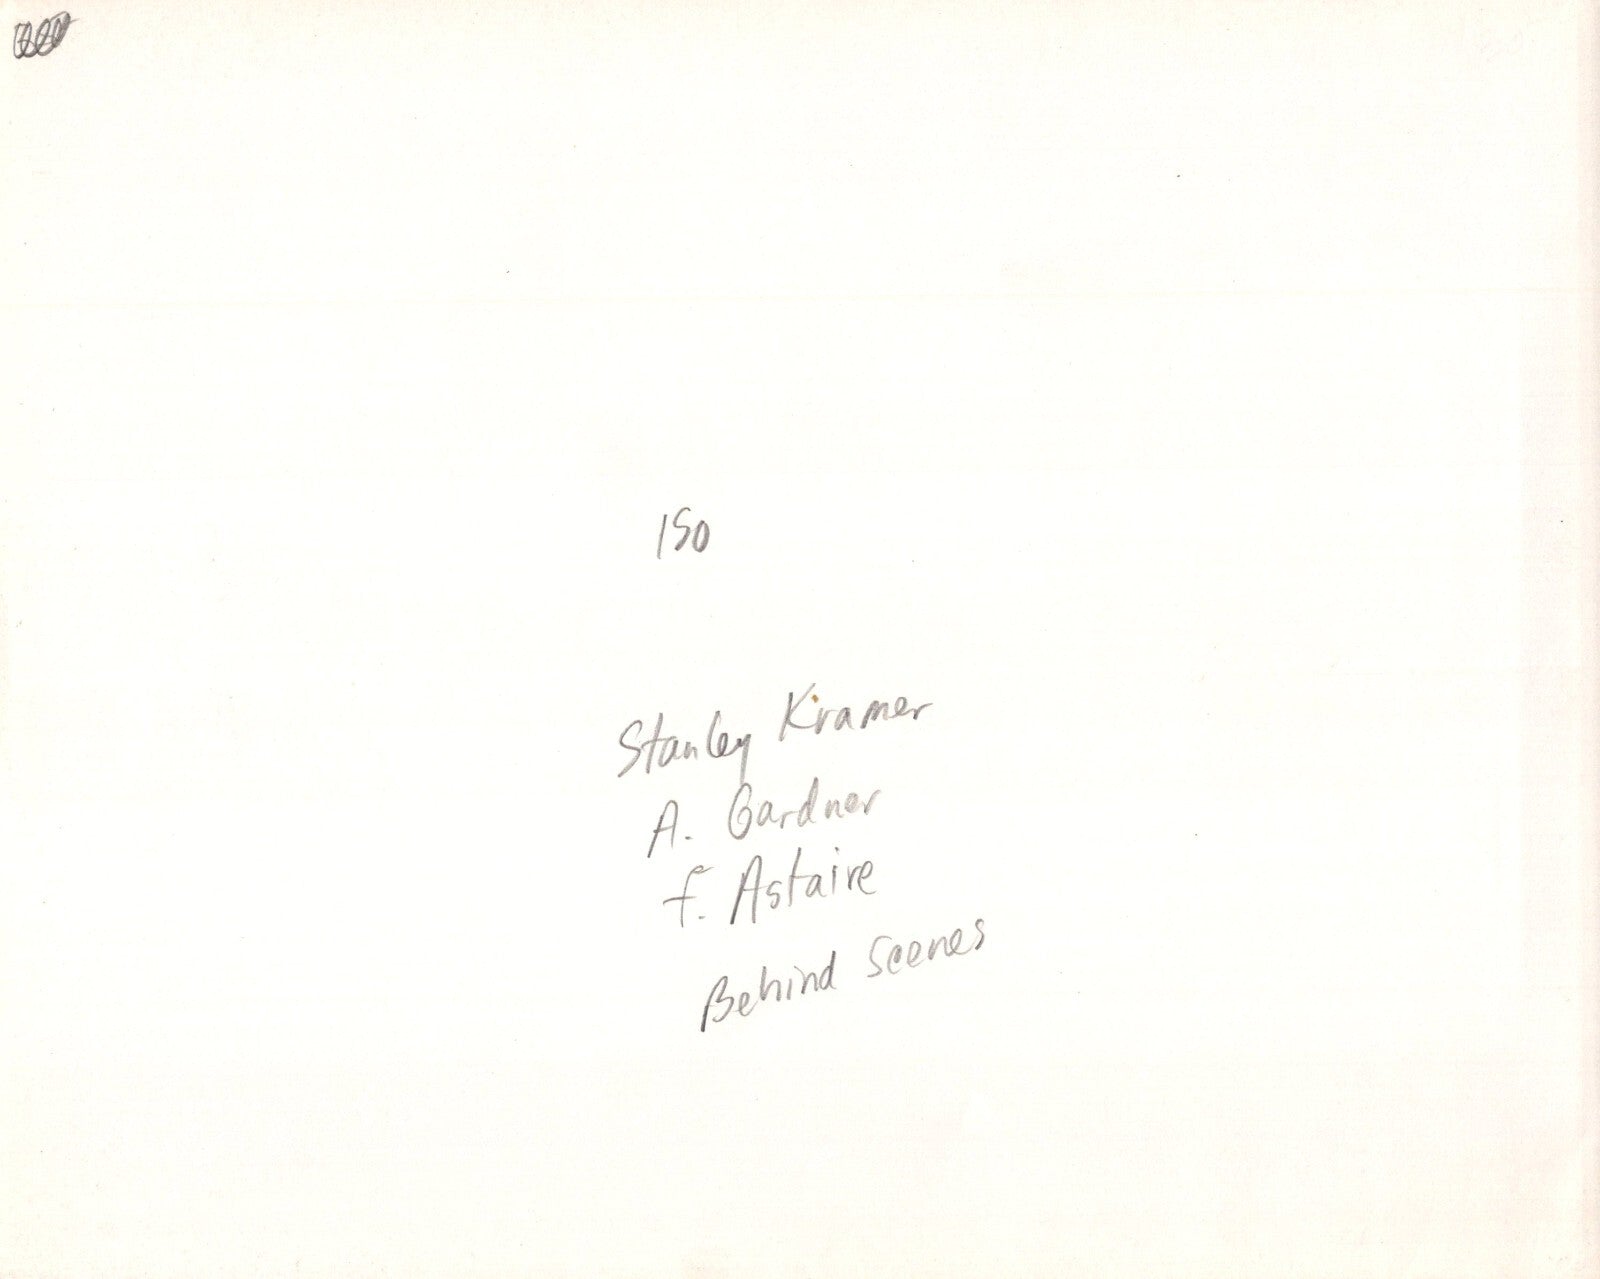 150
Stanley Kramer
A. Gardner
F. Astaire
Behind Scenes